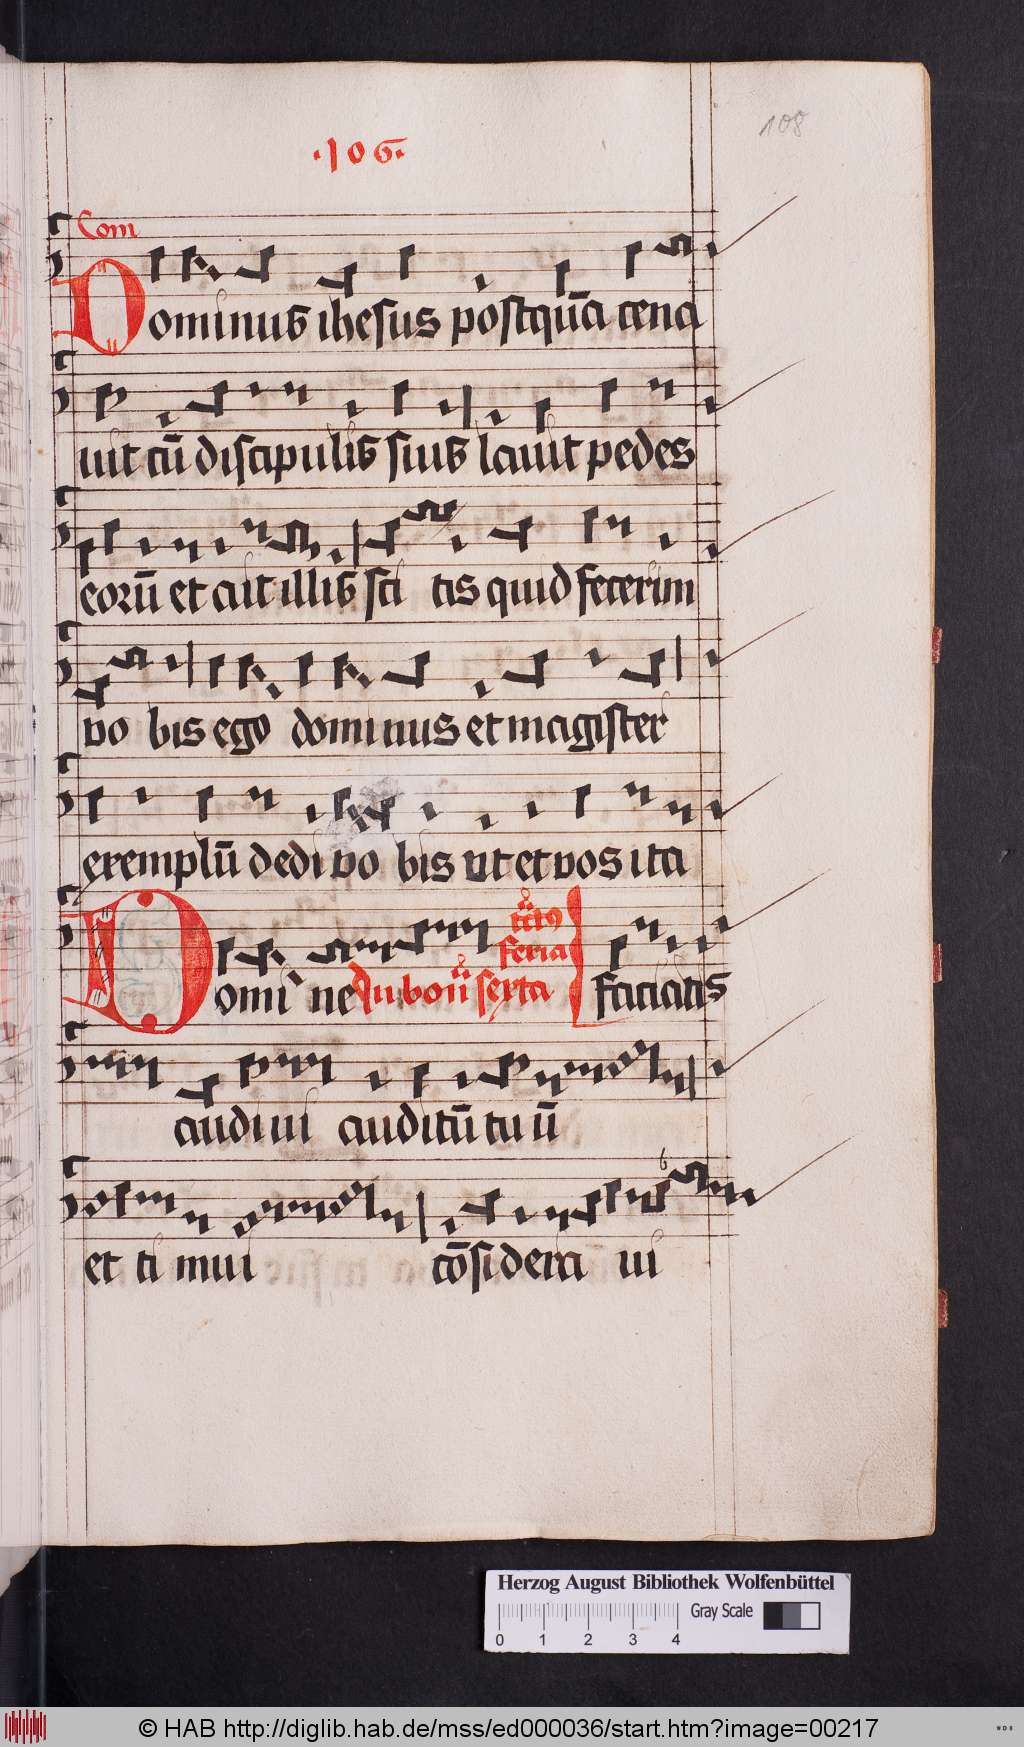 108
·106·
Com
Dominus ihesus postquā cena
uit cū discipulis suis lauit pedes
eorū et ait illis sci tis quid fecerim
vo bis ego dominus et magister
exemplū dedi vo bis vt et vos ita
feria
Domi ne In sexta faciatis
audi ui auditū tu ū
et ti mui cōsidera ui
Herzog August Bibliothek Wolfenbüttel
Gray Scale
0 1 2 3 4
© HAB http://diglib.hab.de/mss/ed000036/start.htm?image=00217